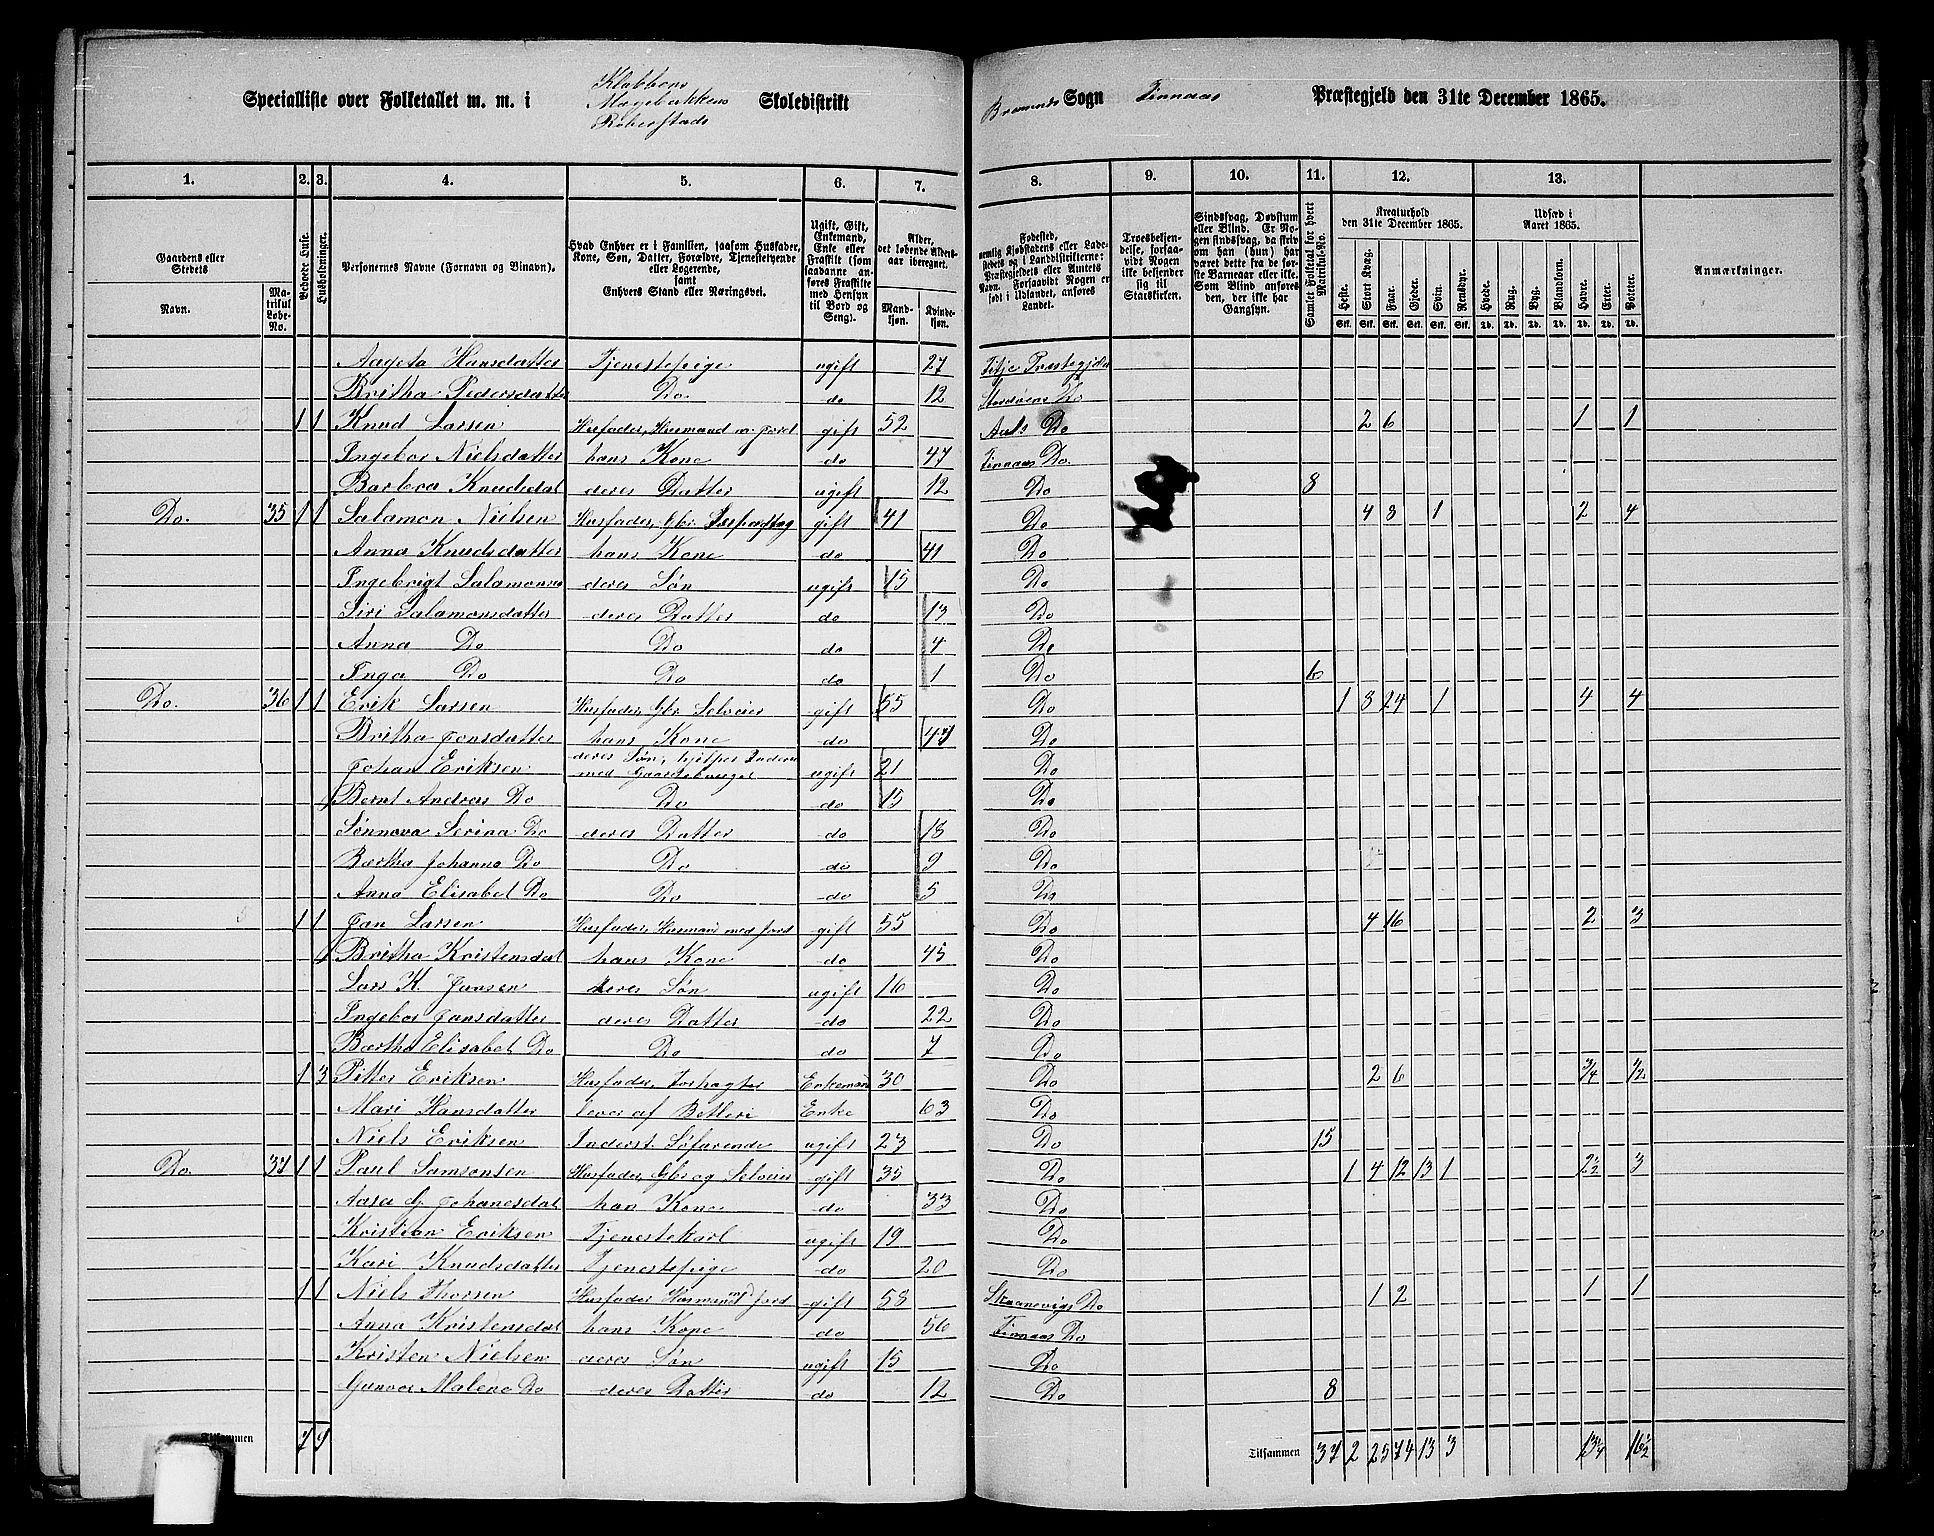 Specialliste over Folketallet m. m. i Klubbens Mogebakkens Roberstads Skoledistrikt
Bremnes Sogn Finnaas Præstegjeld den 31te December 1865.
1. 2. 3. 4. 5. 6. 7. 8. 9. 10. 11. 12. 13.
Gaardens eller Stedets
Navn.
Matrikul Løbe-No.
Beboede Huse.
Husholdninger.
Personernes Navne (Fornavn og Binavn).
Hvad Enhver er i Familien, saasom Husfader, Kone, Søn, Datter, Forældre, Tjenestetyende eller Logerende, samt Enhvers Stand eller Næringsvei.
Ugift, Gift, Enkemand, Enke eller Fraskilt (som saadanne anføres Fraskilte med Hensyn til Bord og Seng).
Alder, det løbende Alders-aar iberegnet.
Mandkjøn. Kvindekjøn.
Fødested, nemlig Kjøbstadens eller Ladestedets og i Landdistrikterne: Præstegjeldets eller Amtets Navn. Forsaavidt Nogen er født i Udlandet, anføres Landet.
Troesbekjendelse, forsaavidt Nogen ikke bekjender sig til Statskirken.
Sindssvag, Døvstum eller Blind. Er Nogen sindssvag, da skrives om han (hun) har været dette fra de første Barneaar eller ikke. Som Blind ansøres den, der ikke har Gangsyn.
Samlet Folketal for hvert Matrikul-No.
Kreaturhold den 31te December 1865.
Heste. Stort Kvæg. Faar. Gjeder. Svin. Rensdyr.
Udsæd i Aaret 1865.
Hvede. Rug. Byg. Blandkorn. Havre. Erter. Poteter.
Stk. Stk. Stk. Stk. Stk. Stk. Td. Td. Td. Td. Td. Td. Td.
Anmærkninger.
Aageta Hansdatter Tjenestepige ugift 27 Fitje Præstegjeld
Britha Pedersdatter Do do 12 Stordøens Do
1 1 Knud Larsen Husfader, Husmand m. Jord gift 52 Do 2 6 1 1
Ingebor Nielsdatter hans Kone do 47 Finnaas Do.
Barbra Knudsdat deres Datter ugift 12 Do 8
Do. 35 1 1 Salamon Nielsen Husfader, Gbr. gift 41 Do 4 8 1 2 4
Anna Knudsdatter hans Kone do 41 Do
Ingebrigt Salamonsen deres Søn ugift 15 Do
Siri Salamonsdatter deres Datter do 13 Do
Anna Do Do do 4 Do
Inga Do Do do 1 Do 6
Do. 36 1 1 Erik Larsen Husfader, Gbr. Selveier gift 55 Do 1 8 24 1 4 4
Britha Jonsdatter hans Kone do 47 Do
Johan Eriksen deres Søn, hjelper Faderen med Gaardsbruget ugift 21 Do
Bernt Andreas Do Do do 15 Do
Sønnova Serina Do deres Datter do 18 Do
Bærtha Johanna Do Do do 9 Do
Anna Elisabet Do Do do 5 Do
1 1 Jan Larsen Husfader, Husmand med Jord gift 55 Do 4 16 2 3
Britha Kristensdat hans Kone do 45 Do
Lars K. Jansen deres Søn ugift 16 Do
Ingebor Jansdatter deres Datter do 22 Do
Bærtha Elisabet Do Do do 7 Do
1 3 Petter Eriksen Husfader, Enkemand 30 Do 2 6 3/4 1/2
Mari Hansdatter lever af Betleri Enke 63 Do
Niels Eriksen Inderst. Søfarende ugift 23 Do 15
Do 37 1 1 Paul Samsonsen Husfader, Gbr og Selveier gift 35 Do 1 4 12 13 1 2 1/2 3
Aasa G Johanesdat han Kone do 33 Do
Kristian Eriksen Tjenestekarl ugift 19 Do
Kari Knudsdatter Tjenestepige do 20 Do
1 1 Niels Thorsen Husfader Husmand m Jord gift 58 Skaanevigs Do 1 2 1 1
Anna Kristensdat hans Kone do 56 Finnaas Do
Kristen Nielsen deres Søn ugift 15 Do
Gunvor Malene Do deres Datter do 12 Do 8
Tilsammen 7 9 Tilsammen 37 2 25 74 13 3 13 1/4 16 1/2